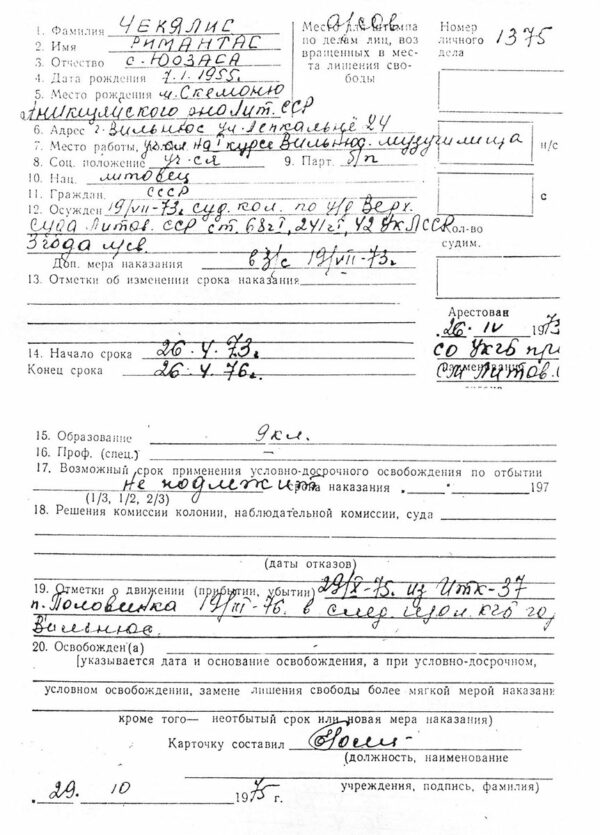 1. Фамилия ЧЕКЯЛИС
2. Имя РИМАНТАС
3. Отчество с. Юозаса
4. Дата рождения 7.1.1955г.
5. Место рождения м. Скемоню
Аникщяйского Лит. ССР
6. Адрес г. Вильнюс ул. Лепкальнё 24
7. Место работы, уч-ся на I курсе Вильнюс. музучилища
8. Соц. положение уч-ся 9. Парт. б/п
10. Нац. литовец
11. Граждан. СССР
12. Осужден 19/VII-73г. суд. кол. по у/д Верх.
Суда Литов. ССР ст. 68ч1, 241ч1, 42 УК ЛССР
3 года л/св.
Доп. мера наказания в з/с 19/VII-73г
13. Отметки об изменении срока наказания
14. Начало срока 26.4.73г.
Конец срока 26.4.76г.
Место для штампа
по делам лиц, воз
вращенных в мес-
та лишения сво-
боды
Номер
личного
дела
1375
н/с
с
Кол-во
судим.
Арестован
26.IV 1973
со УКГБ при
СМ Литов.
15. Образование 9 кл.
16. Проф. (спец.) —
17. Возможный срок применения условно-досрочного освобождения по отбытии
не подлежит срока наказания . . 197
(1/3, 1/2, 2/3)
18. Решения комиссии колонии, наблюдательной комиссии, суда
(даты отказов)
19. Отметки о движении (прибытии, убытии) 29/X-75. из ИТК-37
п. Половинка 19/III-76. в след. изол. КГБ го
Вильнюс.
20. Освобожден(а)
[указывается дата и основание освобождения, а при условно-досрочном,
условном освобождении, замене лишения свободы более мягкой мерой наказани
кроме того— неотбытый срок или новая мера наказания)
Карточку составил
(должность, наименование
учреждения, подпись, фамилия)
29. 10 1975 г.